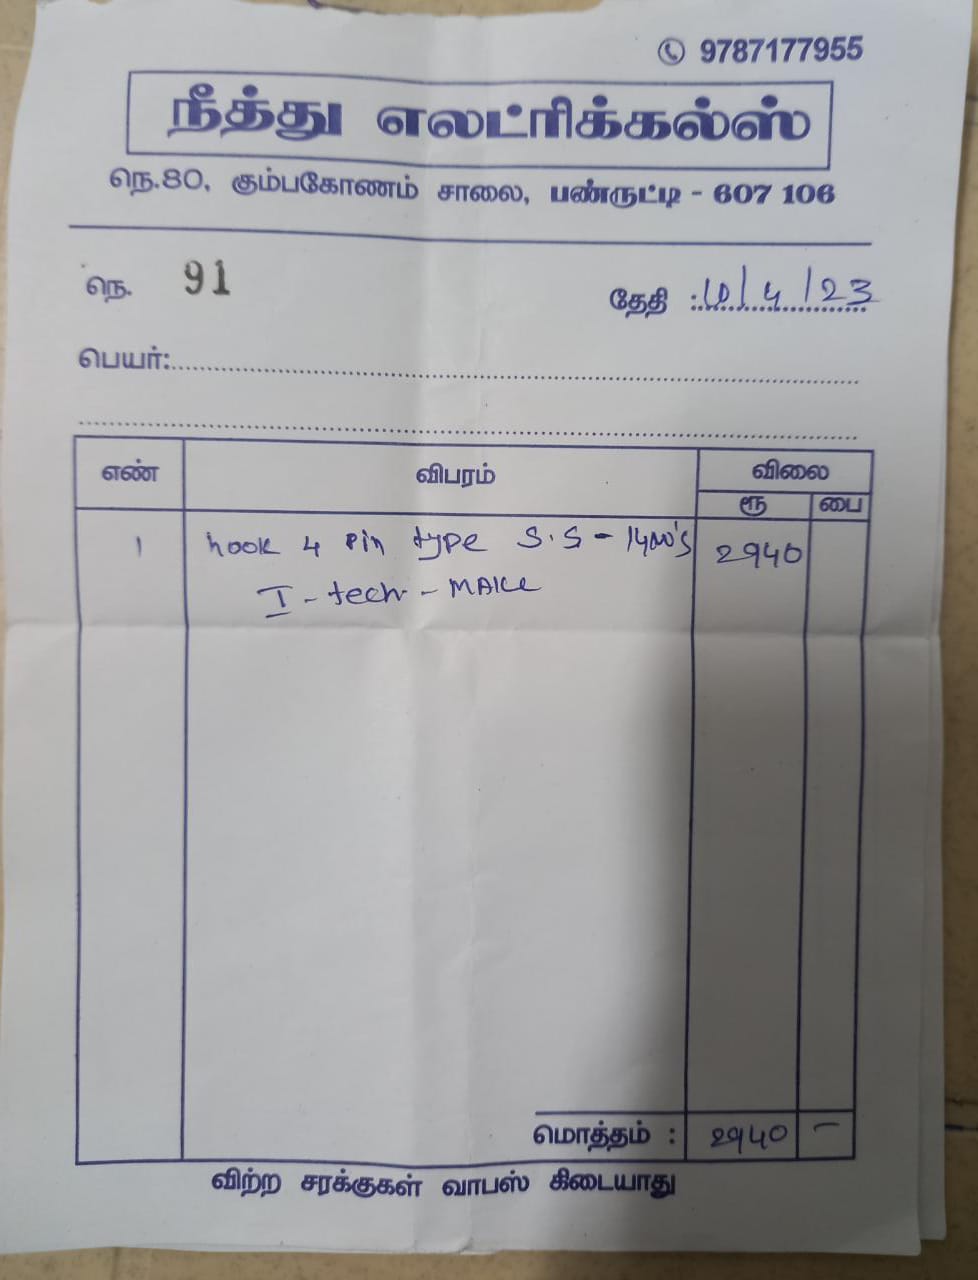 9787177955
நீத்து எலட்ரிக்கல்ஸ்
நெ.80, கும்பகோணம் சாலை, பண்ருட்டி - 607 106
நெ. 91 தேதி : /4/23
பெயர்:
எண் விபரம் விலை
ரூ பை
1 hook 4 pin type S.S - 2940
I - tech - MAKE
மொத்தம் : 2940 -
விற்ற சரக்குகள் வாபஸ் கிடையாது